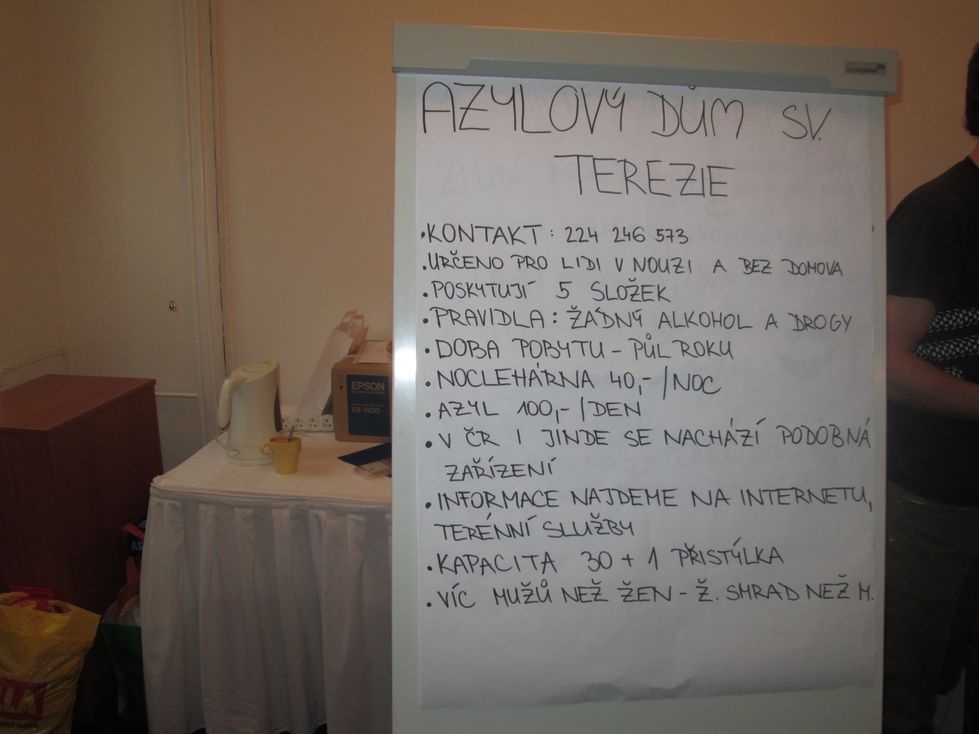 AZYLOVÝ DŮM SV.
TEREZIE
•KONTAKT: 224 246 573
•URČENO PRO LIDI V NOUZI A BEZ DOMOVA
•POSKYTUJÍ 5 SLOŽEK
•PRAVIDLA: ŽÁDNÝ ALKOHOL A DROGY
•DOBA POBYTU - PŮL ROKU
•NOCLEHÁRNA 40,- /NOC
•AZYL 100,- /DEN
•V ČR I JINDE SE NACHÁZÍ PODOBNÁ
ZAŘÍZENÍ
•INFORMACE NAJDEME NA INTERNETU,
TERÉNNÍ SLUŽBY
•KAPACITA 30 + 1 PŘISTÝLKA
•VÍC MUŽŮ NEŽ ŽEN - Ž. SMRAD NEŽ M.
EPSON
EB-1900